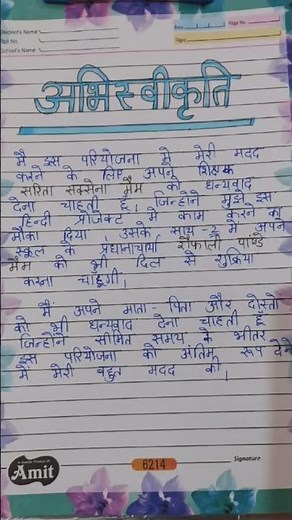 Student's Name :
Roll No. :
School's Name :
Date :
Page No. :
Topic :
अभिस्वीकृति
मै इस परियोजना मे मेरी मदद
करने के लिए अपने शिक्षक
सरिता सक्सेना मैम को धन्यवाद
देना चाहती हूँ। जिन्होने मुझे इस
हिन्दी प्रोजेक्ट मे काम करने का
मौका दिया उसके साथ-2 मे अपने
स्कूल के प्रधानाचार्या शैफाली पाण्डे
मैम को भी दिल से शुक्रिया
करना चाहूँगी।
मैं अपने माता-पिता और दोस्तो
को भी धन्यवाद देना चाहती हूँ
जिन्होने सीमित समय के भीतर
इस परियोजना को अंतिम रूप देने
में मेरी बहुत मदद की।
Amit
6214
Signature